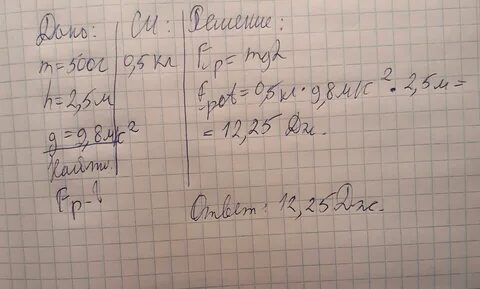 Дано: СИ: Решение:
m=500г 0,5 кг Ep=mgh
h=2,5м Epot=0,5кг·9,8м/с²·2,5м=
g=9,8м/с² =12,25 Дж.
Найти:
Ep-?
Ответ: 12,25Дж.